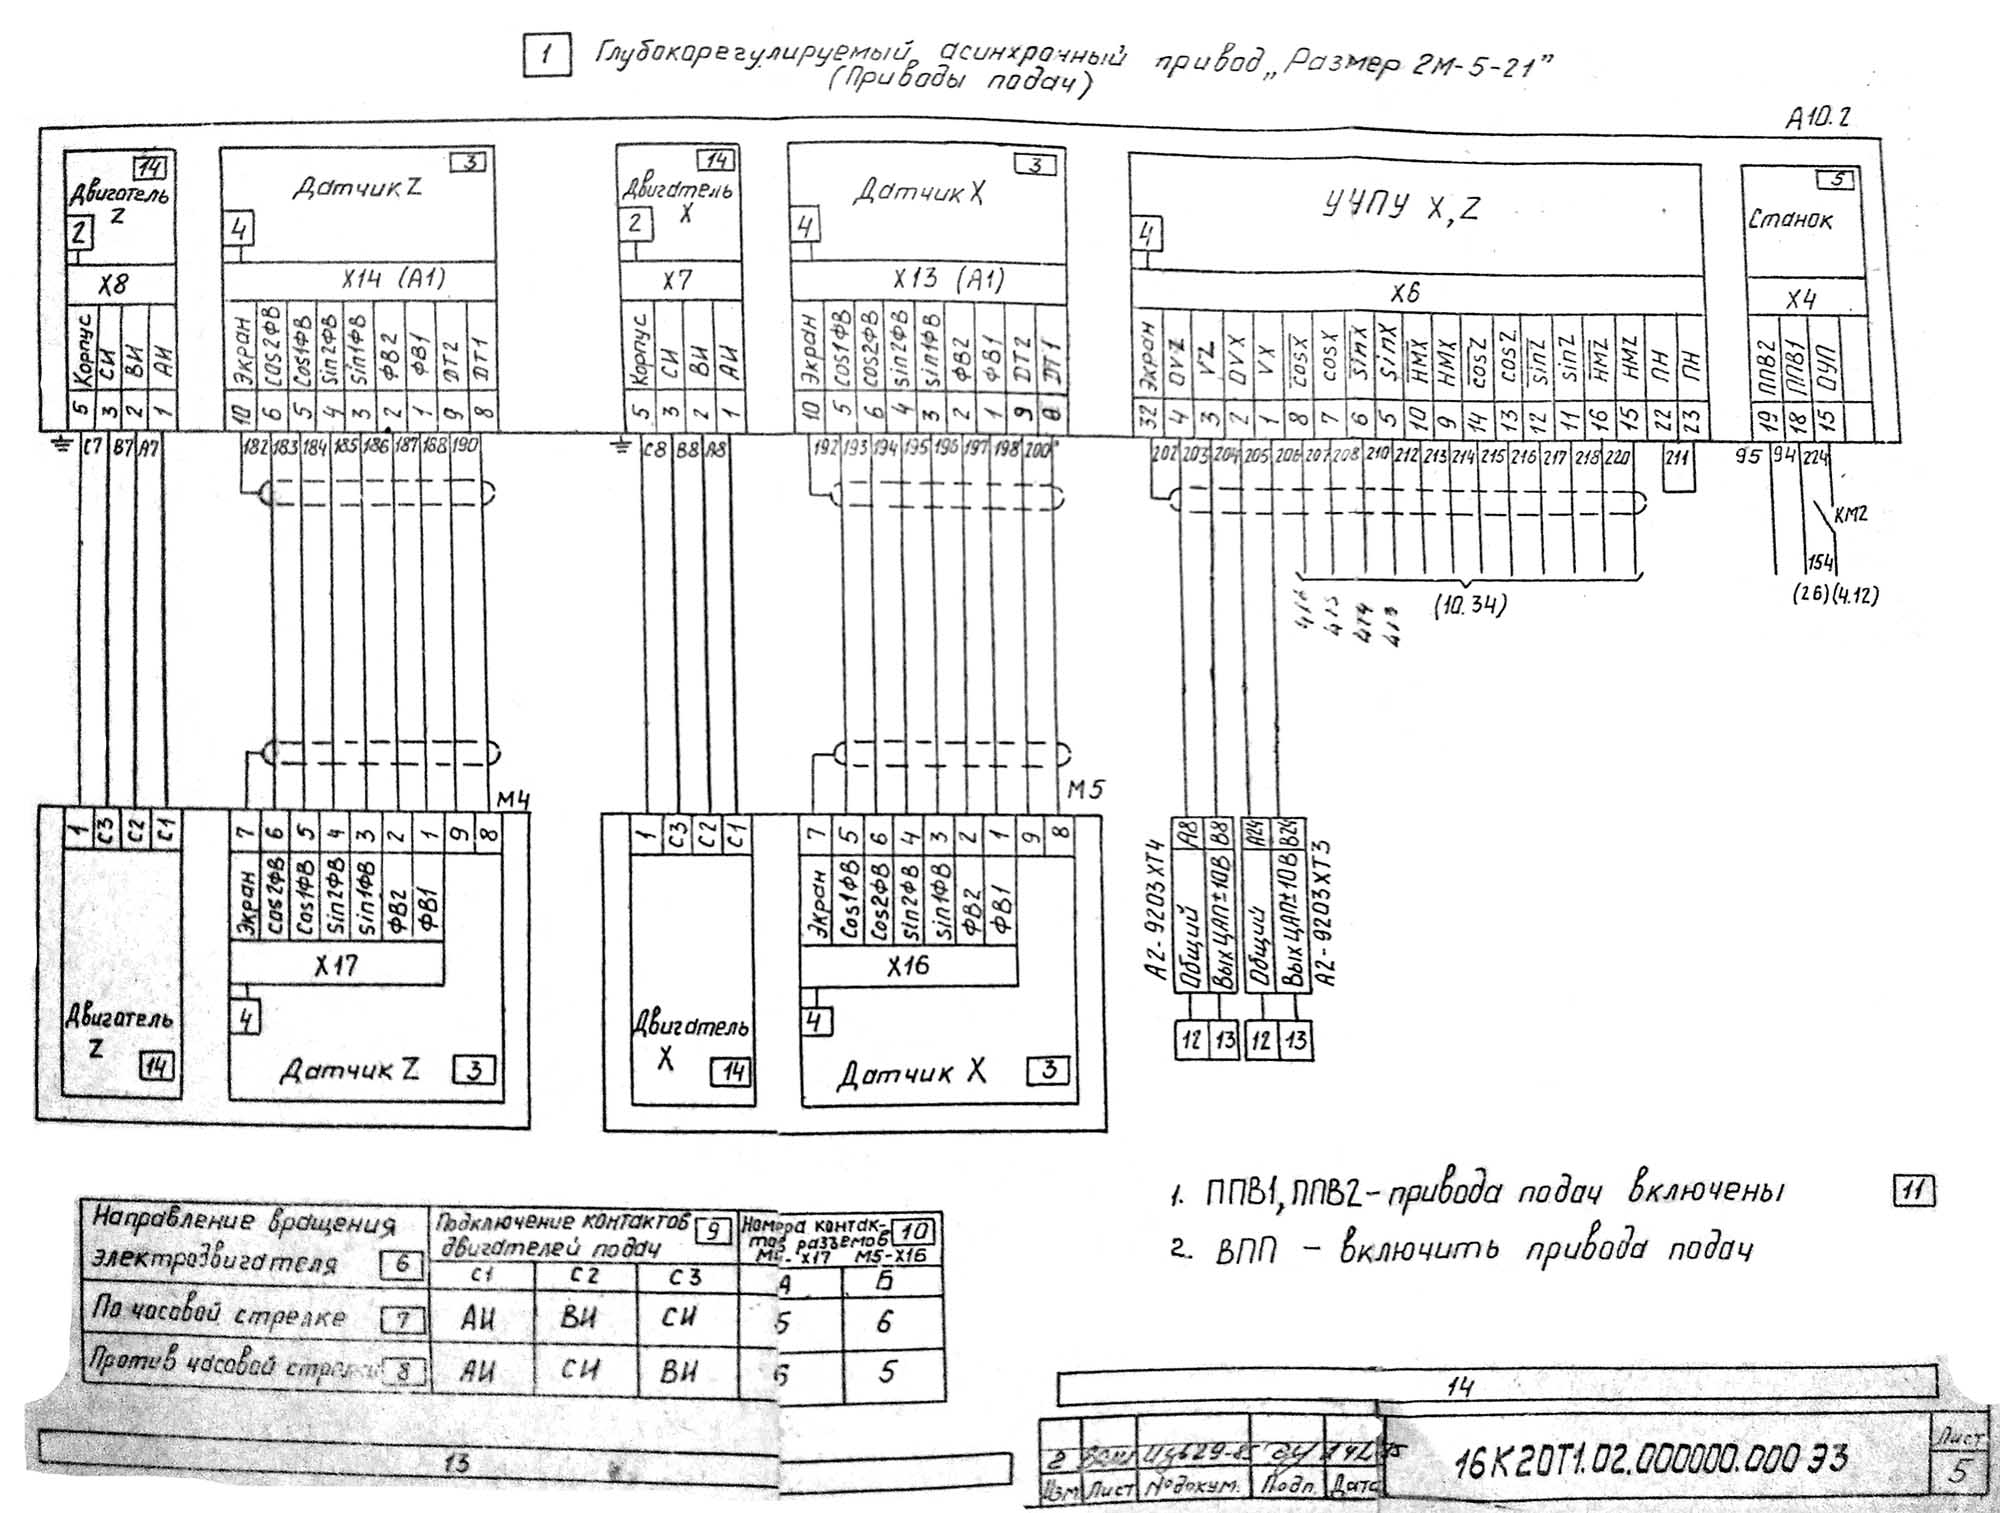 1 Глубокорегулируемый асинхронный привод „Размер 2М-5-21”
(Приводы подач)
А10.2
14
Двигатель
Z
2
X8
Корпус СИ ВИ АИ
5 3 2 1
С7 В7 А7
3
Датчик Z
4
X14 (А1)
Экран cos2ФВ cos1ФВ sin2ФВ sin1ФВ ФВ2 ФВ1 DT2 DT1
10 6 5 4 3 2 1 9 8
182 183 184 185 186 187 168 190
14
Двигатель
X
2
X7
Корпус СИ ВИ АИ
5 3 2 1
С8 В8 А8
3
Датчик X
4
X13 (А1)
Экран cos1ФВ cos2ФВ sin2ФВ sin1ФВ ФВ2 ФВ1 DT2 DT1
10 5 6 4 3 2 1 9 8
192 193 194 195 196 197 198 200
УЧПУ X, Z
4
X6
Экран OVZ VZ OVX VX cosX cosX sinX sinX НМХ НМХ cosZ cosZ sinZ sinZ HMZ HMZ ПН ПН
32 4 3 2 1 8 7 6 5 10 9 14 13 12 11 16 15 22 23
202 203 204 205 206 207 208 210 212 213 214 215 216 217 218 220 211
5
Станок
X4
ППВ2 ППВ1 ОУП
19 18 15
95 94 224
КМ2
154
(26) (4.12)
(10.34)
416 415 414 413
М4
1 С3 С2 С1
Двигатель
Z
14
7 6 5 4 3 2 1 9 8
Экран cos2ФВ cos1ФВ sin2ФВ sin1ФВ ФВ2 ФВ1
X17
4
Датчик Z 3
М5
1 С3 С2 С1
Двигатель
X
14
7 5 6 4 3 2 1 9 8
Экран cos1ФВ cos2ФВ sin2ФВ sin1ФВ ФВ2 ФВ1
X16
4
Датчик X 3
А2-9203ХТ4
А8 В8 А24 В24
Общий Вых ЦАП±10В Общий Вых ЦАП±10В
А2-9203ХТ3
12 13 12 13
1. ППВ1, ППВ2 – привода подач включены 11
2. ВПП – включить привода подач
Направление вращения
электродвигателя 6
Подключение контактов 9
двигателей подач
С1 С2 С3
Номера контак- 10
тов разъемов
М4-Х17 М5-Х16
А Б
По часовой стрелке 7 АИ ВИ СИ 5 6
Против часовой стрелки 8 АИ СИ ВИ 6 5
13
14
Изм Лист №докум. Подп. Дата
16К20Т1.02.000000.000 Э3
Лист
5